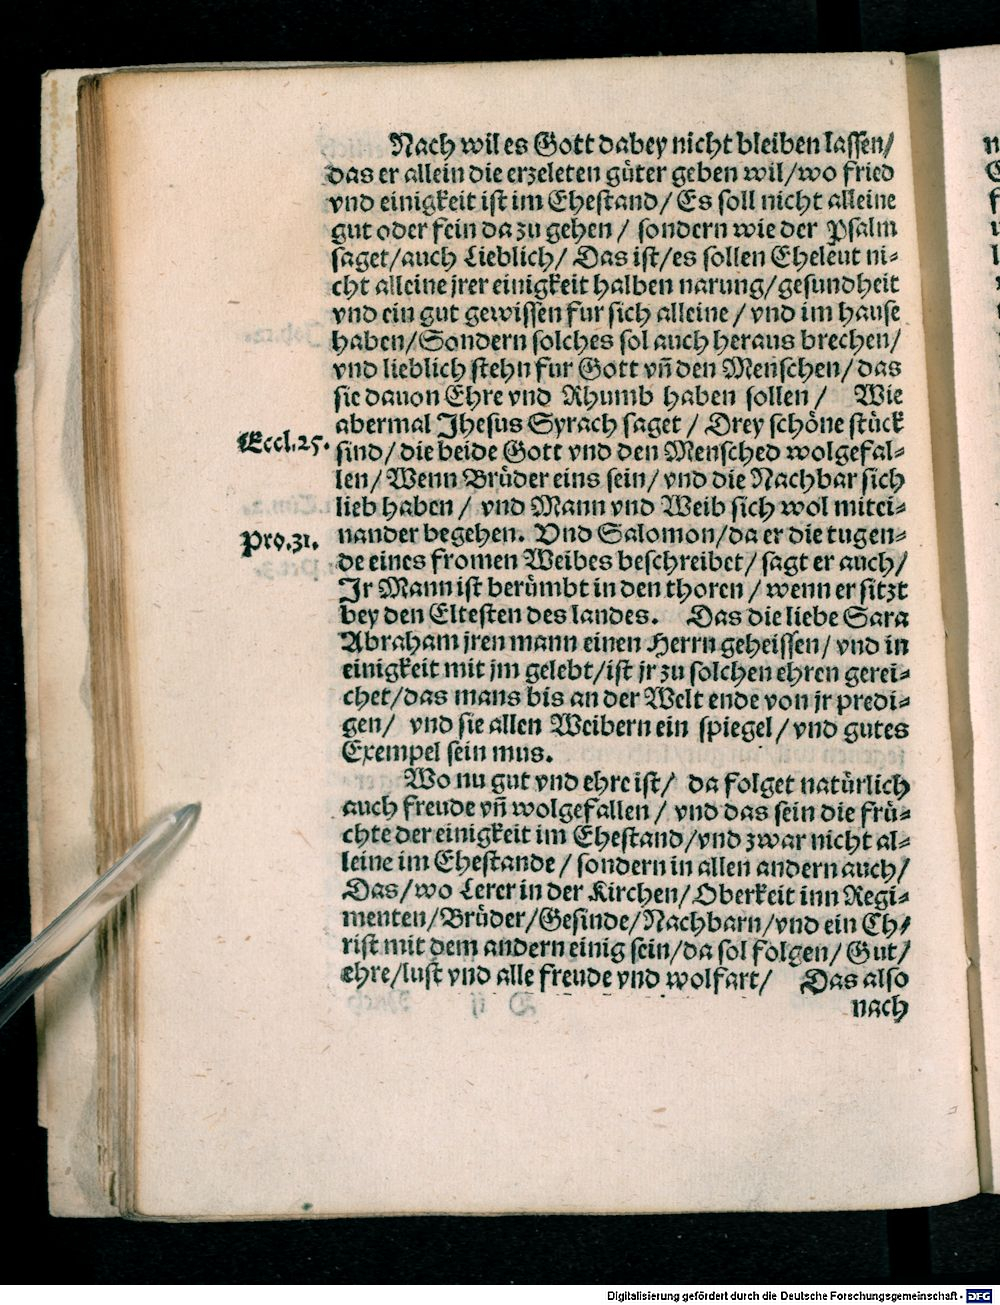 Nach wil es Gott dabey nicht bleiben lassen/
das er allein die erzeleten güter geben wil/wo fried
vnd einigkeit ist im Ehestand/ Es soll nicht alleine
gut oder fein da zu gehen / sondern wie der Psalm
saget/auch Lieblich/ Das ist/es sollen Eheleut ni-
cht alleine jrer einigkeit halben narung/gesundheit
vnd ein gut gewissen fur sich alleine / vnd im hause
haben/Sondern solches sol auch heraus brechen/
vnd lieblich stehn fur Gott vn̄ den Menschen/ das
sie dauon Ehre vnd Rhumb haben sollen / Wie
abermal Jhesus Syrach saget / Drey schöne stück
Eccl.25.
sind/ die beide Gott vnd den Mensched wolgefal-
len/ Wenn Brüder eins sein/ vnd die Nachbar sich
lieb haben / vnd Mann vnd Weib sich wol mitei-
nander begehen. Vnd Salomon/da er die tugen-
Pro.31.
de eines fromen Weibes beschreibet/ sagt er auch/
Jr Mann ist berümbt in den thoren / wenn er sitzt
bey den Eltesten des landes. Das die liebe Sara
Abraham jren mann einen Herrn geheissen/ vnd in
einigkeit mit jm gelebt/ist jr zu solchen ehren gerei-
chet/das mans bis an der Welt ende von jr predi-
gen/ vnd sie allen Weibern ein spiegel / vnd gutes
Exempel sein mus.
Wo nu gut vnd ehre ist/ da folget natürlich
auch freude vn̄ wolgefallen / vnd das sein die frü-
chte der einigkeit im Ehestand/vnd zwar nicht al-
leine im Ehestande / sondern in allen andern auch/
Das/wo Lerer in der Kirchen/ Oberkeit inn Regi-
menten/Brüder/Gesinde/Nachbarn/vnd ein Ch-
rist mit dem andern einig sein/da sol folgen/ Gut/
ehre/lust vnd alle freude vnd wolfart/ Das also
nach
Digitalisierung gefördert durch die Deutsche Forschungsgemeinschaft - DFG